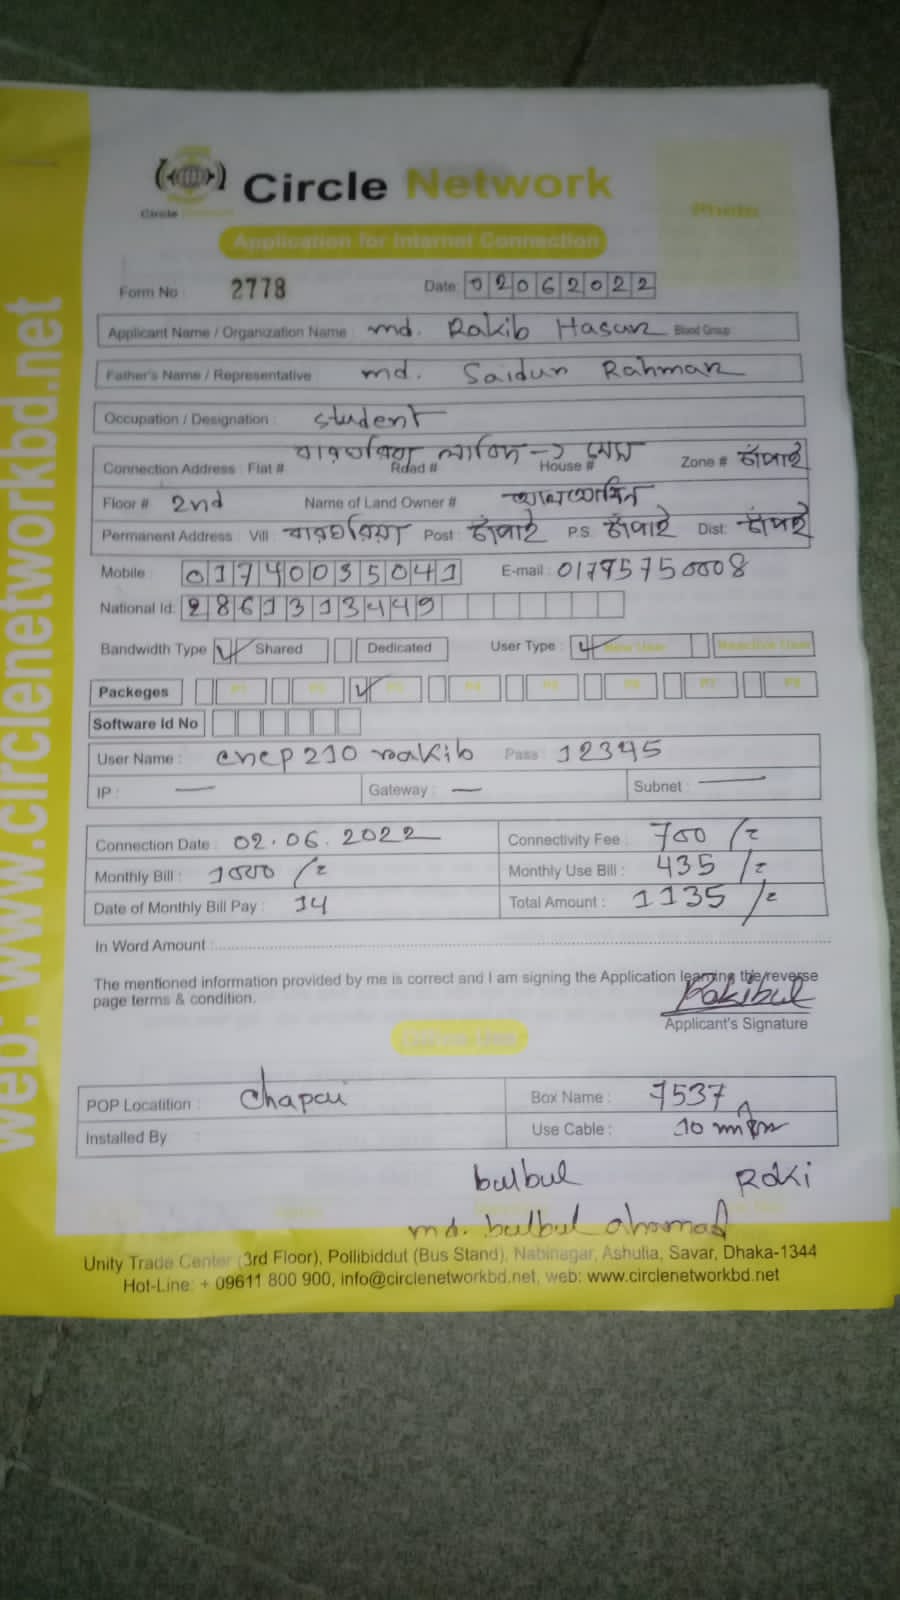 Circle Network
Circle
Application for Internet Connection
Photo
Form No : 2778 Date: 02062022
Applicant Name / Organization Name : md. Rakib Hasan Blood Group
Father's Name / Representative md. Saidur Rahman
Occupation / Designation : student
বারঘরিয়া
Connection Address : Flat # Road # House # Zone # চাঁপাই
Floor # 2nd Name of Land Owner #
Permanent Address : Vill বারঘরিয়া Post : চাঁপাই P.S. চাঁপাই Dist. চাঁপাই
Mobile 01740035041 E-mail : 01795750008
National Id: 2861313449
Bandwidth Type Shared Dedicated User Type : New User Reactive User
Packeges P1 P2 P3 P4 P5 P6 P7 P8
Software Id No
User Name : cncp210 rakib Pass : 12345
IP : — Gateway : — Subnet : —
Connection Date : 02.06.2022 Connectivity Fee : 700 /=
Monthly Bill : 1000 /= Monthly Use Bill : 435 /=
Date of Monthly Bill Pay : 14 Total Amount : 1135 /=
In Word Amount :
The mentioned information provided by me is correct and I am signing the Application learning the reverse
page terms & condition.
Rakibul
Applicant's Signature
POP Locatition : Chapai Box Name : 7537
Installed By : Use Cable : 10
bulbul Roki
md. bulbul ahmmad
Unity Trade Center (3rd Floor), Pollibiddut (Bus Stand), Nabinagar, Ashulia, Savar, Dhaka-1344
Hot-Line: + 09611 800 900, info@circlenetworkbd.net, web: www.circlenetworkbd.net
web: www.circlenetworkbd.net